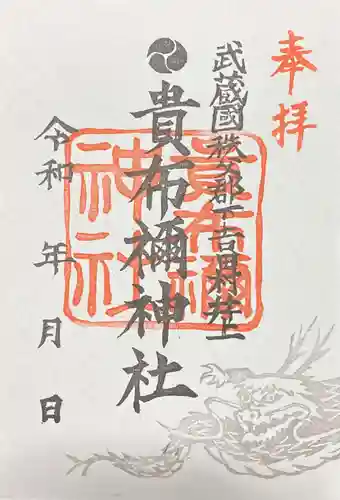 奉拝
武蔵國秩父郡下吉田村井上
貴布禰神社
令和 年 月 日
貴布禰
神社